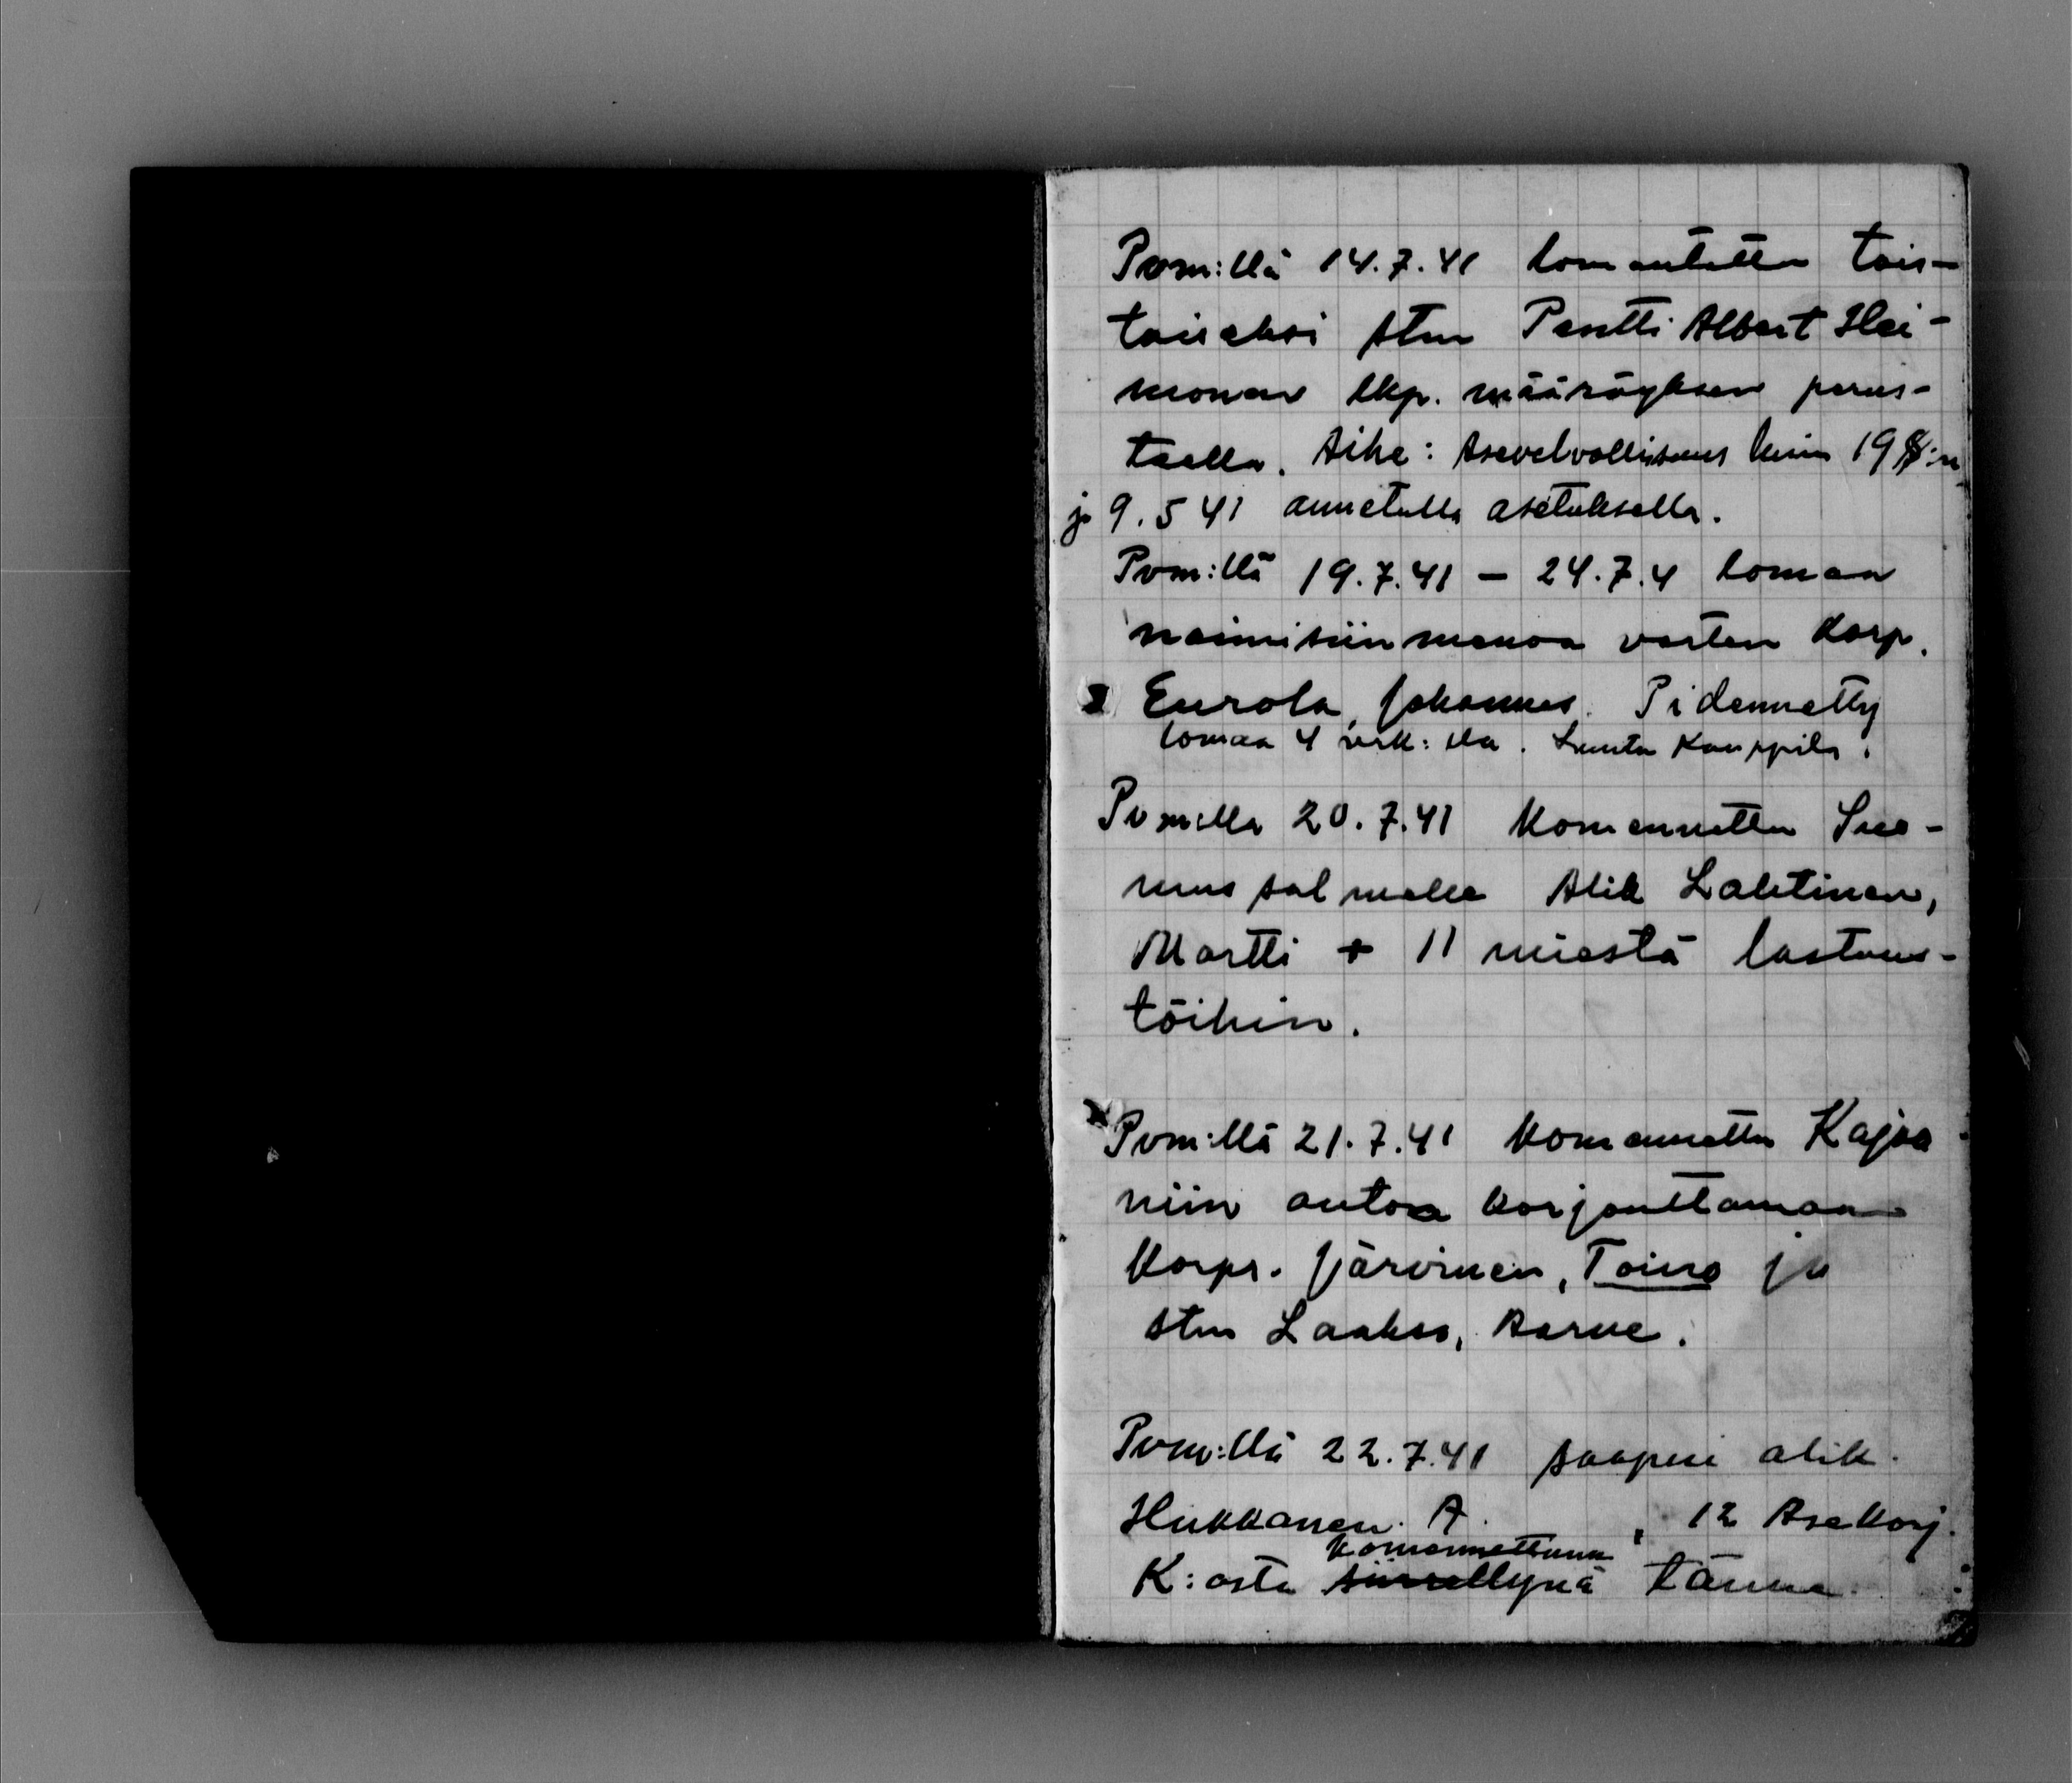 Pvm:llä 14.7.41 lomautettu tois-
taiseksi stm Pentti Albert Hei-
monen lkp. määräyksen perus-
taella. Aihe: Asevelvollisuus lain 19 §:n
ja 9.5 41 annetulla asetuksella.
Pvm:llä 19.7.41 – 24.7.4 lomaa
naimisiinmenoa varten Korp.
Eurola, Johannes. Pidennetty
lomaa 4 vrk:lla. Luutn Kauppila.
Pvm:lla 20.7.41 Komennettu Suo-
mussalmelle Alik Lahtinen,
Martti + 11 miestä lastaus-
töihin.
Pvm:llä 21.7.41 Komennettu Kajaa
niin autoa korjauttamaan
Korpr. Järvinen, Toivo ja
stm Laakso, Aarne.
Pvm:llä 22.7.41 saapui alik.
Hukkanen. A. , 12 Asekorj.
komennettuna
K:osta siirrettynä tänne.